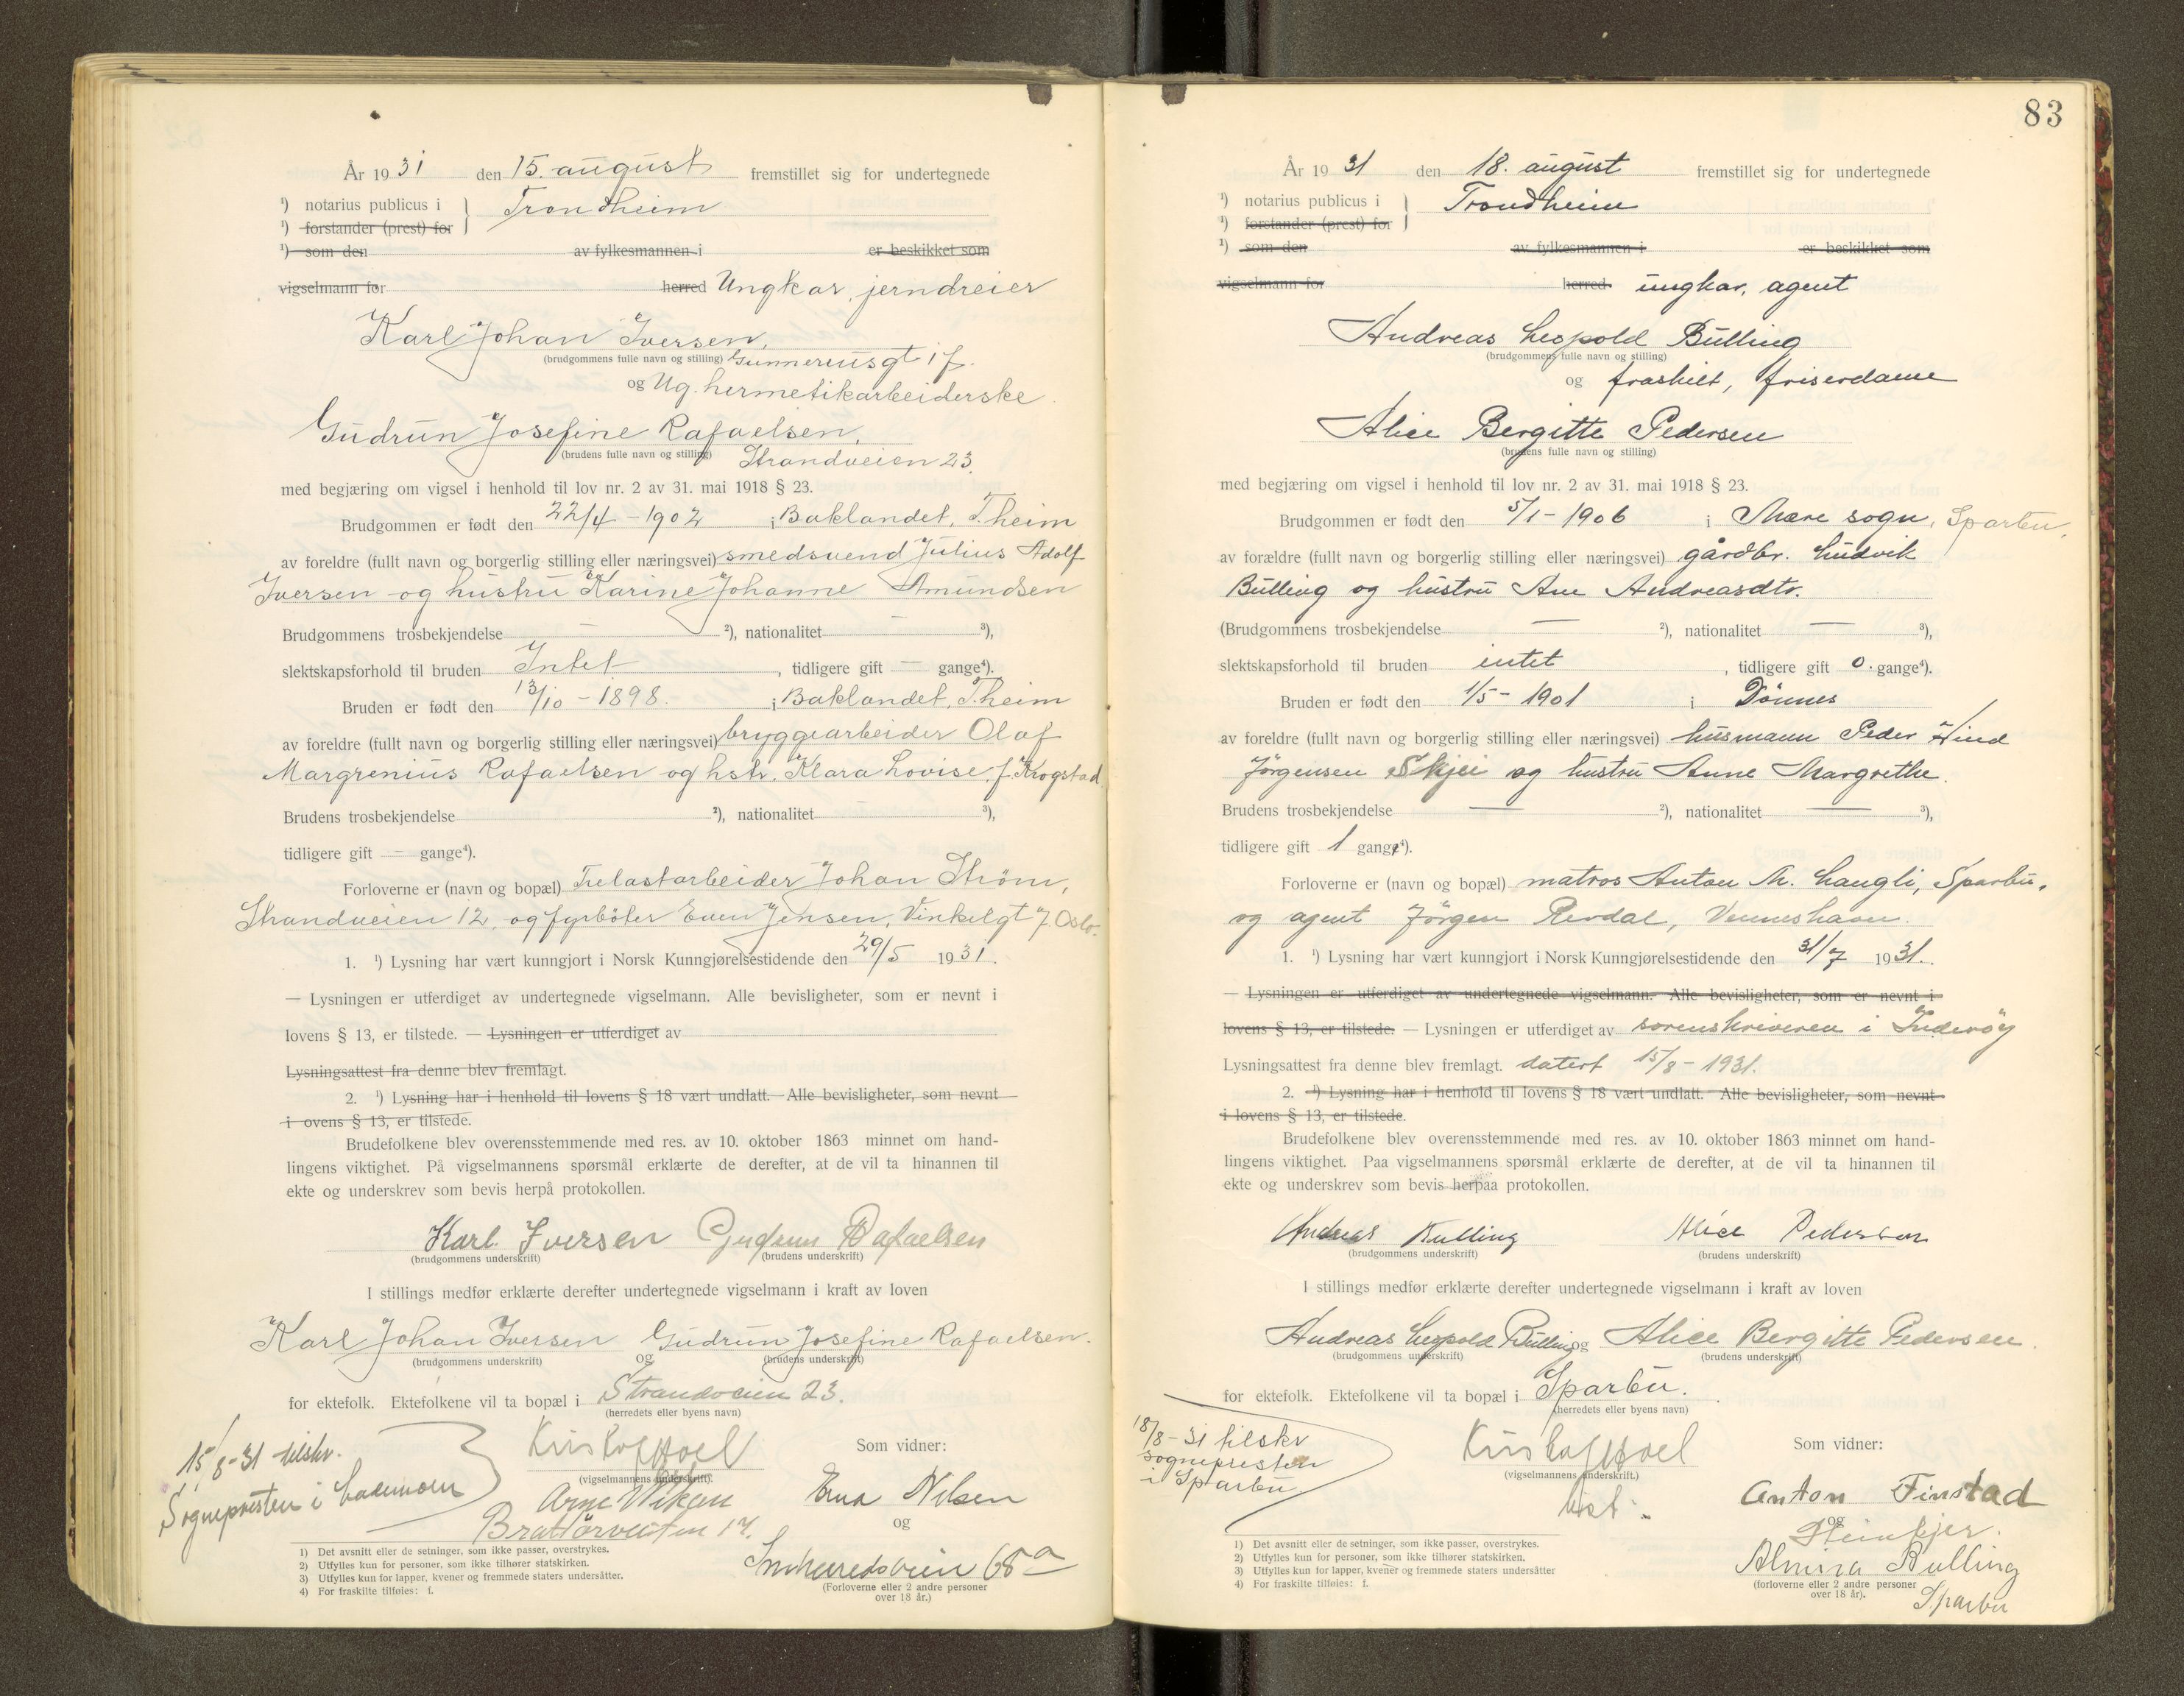 År 1931 den 15. august fremstillet sig for undertegnede
¹) notarius publicus i } Trondheim
¹) forstander (prest) for
¹) som den av fylkesmannen i er beskikket som
vigselmann for herred Ungkar, jerndreier
Karl Johan Iversen,
(brudgommens fulle navn og stilling) Gunnerusgt 1 f.
og Ug. hermetikarbeiderske
Gudrun Josefine Rafaelsen,
(brudens fulle navn og stilling) Strandveien 23.
med begjæring om vigsel i henhold til lov nr. 2 av 31. mai 1918 § 23.
Brudgommen er født den 22/4 - 1902 i Baklandet, T.heim
av foreldre (fullt navn og borgerlig stilling eller næringsvei) smedsvend Julius Adolf
Iversen og hustru Karine Johanne Amundsen
Brudgommens trosbekjendelse — ²), nationalitet — ³),
slektskapsforhold til bruden Intet, tidligere gift — gange⁴).
Bruden er født den 13/10 - 1898. i Baklandet, T.heim
av foreldre (fullt navn og borgerlig stilling eller næringsvei) bryggearbeider Olaf
Margrenius Rafaelsen og hstr. Klara Lovise, f. Krogstad
Brudens trosbekjendelse ²), nationalitet ³),
tidligere gift — gange⁴).
Forloverne er (navn og bopæl) Trelastarbeider Johan Strøm,
Strandveien 12, og fyrbøter Even Jensen, Vinkelgt 7, Oslo.
1. ¹) Lysning har vært kunngjort i Norsk Kunngjørelsestidende den 29/5 1931.
— Lysningen er utferdiget av undertegnede vigselmann. Alle bevisligheter, som er nevnt i
lovens § 13, er tilstede. — Lysningen er utferdiget av
Lysningsattest fra denne blev fremlagt.
2. ¹) Lysning har i henhold til lovens § 18 vært undlatt. Alle bevisligheter, som nevnt
i ovens § 13, er tilstede.
Brudefolkene blev overensstemmende med res. av 10. oktober 1863 minnet om hand-
lingens viktighet. På vigselmannens spørsmål erklærte de derefter, at de vil ta hinannen til
ekte og underskrev som bevis herpå protokollen.
Karl Iversen Gudrun Rafaelsen
(brudgommens underskrift) (brudens underskrift)
I stillings medfør erklærte derefter undertegnede vigselmann i kraft av loven
Karl Johan Iversen og Gudrun Josefine Rafaelsen.
(brudgommens underskrift) (brudens underskrift)
for ektefolk. Ektefolkene vil ta bopæl i Strandveien 23.
(herredets eller byens navn)
15/8-31 tilskr.
Sognepresten i Lademoen
Som vidner:
(vigselmannens underskrift).
Arne Wikan
Erna Nilsen
og
Innherredsveien 68a
(Forloverne eller 2 andre personer
over 18 år.)
1) Det avsnitt eller de setninger, som ikke passer, overstrykes.
2) Utfylles kun for personer, som ikke tilhører statskirken.
3) Utfylles kun for lapper, kvener og fremmede staters undersåtter.
4) For fraskilte tilføies: f.
83
År 1931 den 18. august fremstillet sig for undertegnede
¹) notarius publicus i } Trondheim
¹) forstander (prest) for
¹) som den av fylkesmannen i er beskikket som
vigselmann for herred ungkar, agent
Andreas Leopold Bulling
(brudgommens fulle navn og stilling)
og fraskilt, friserdame
Alice Bergitte Pedersen
(brudens fulle navn og stilling)
med begjæring om vigsel i henhold til lov nr. 2 av 31. mai 1918 § 23.
Brudgommen er født den 5/1 - 1906 i Mære sogn, Sparbu.
av forældre (fullt navn og borgerlig stilling eller næringsvei) gårdbr. Ludvik
Bulling og hustru Ane Andreasdtr.
(Brudgommens trosbekjendelse — ²), nationalitet — ³),
slektskapsforhold til bruden intet, tidligere gift 0. gange⁴).
Bruden er født den 1/5 - 1901 i Dönnes
av foreldre (fullt navn og borgerlig stilling eller næringsvei) husmann Peder Hind
Jörgensen Skjei og hustru Anne Margrethe.
Brudens trosbekjendelse — ²), nationalitet — ³),
tidligere gift 1 gange⁴).
Forloverne er (navn og bopæl) matros Anton M. Langli, Sparbu,
og agent Jörgen Revdal, Venneshavn.
1. ¹) Lysning har vært kunngjort i Norsk Kunngjørelsestidende den 31/7 1931.
— Lysningen er utferdiget av undertegnede vigselmann. Alle bevisligheter, som er nevnt i
lovens § 13, er tilstede. — Lysningen er utferdiget av sorenskriveren i Inderöy
Lysningsattest fra denne blev fremlagt. datert 15/8 - 1931.
2. ¹) Lysning har i henhold til lovens § 18 vært undlatt. Alle bevisligheter, som nevnt
i lovens § 13, er tilstede.
Brudefolkene blev overensstemmende med res. av 10. oktober 1863 minnet om hand-
lingens viktighet. Paa vigselmannens spørsmål erklærte de derefter, at de vil ta hinannen til
ekte og underskrev som bevis herpaa protokollen.
Andreas Bulling Alice Pedersen
(brudgommens underskrift) (brudens underskrift)
I stillings medfør erklærte derefter undertegnede vigselmann i kraft av loven
Andreas Leopold Bulling og Alice Bergitte Pedersen.
(brudgommens underskrift) (brudens underskrift)
for ektefolk. Ektefolkene vil ta bopæl i Sparbu.
(herredets eller byens navn)
18/8-31 tilskr
sognepresten
i Sparbu.
Som vidner:
(vigselmannens underskrift.)
Anton Finstad
og
Steinkjer.
Almira Bulling
(forloverne eller 2 andre personer
over 18 år).
Sparbu
1) Det avsnitt eller de setninger, som ikke passer, overstrykes.
2) Utfylles kun for personer, som ikke tilhører statskirken.
3) Utfylles kun for lapper, kvener og fremmede staters undersåtter
4) For fraskilte tilføies: f.